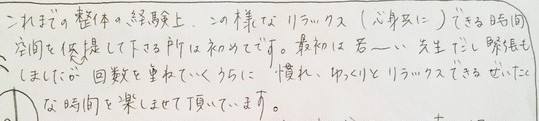 これまでの整体の経験上、この様なリラックス(心身共に)できる時間
空間を提供して下さる所は初めてです。最初は若〜い先生だし緊張も
しましたが回数を重ねていくうちに慣れ、ゆっくりとリラックスできるぜいたく
な時間を楽しませて頂いています。